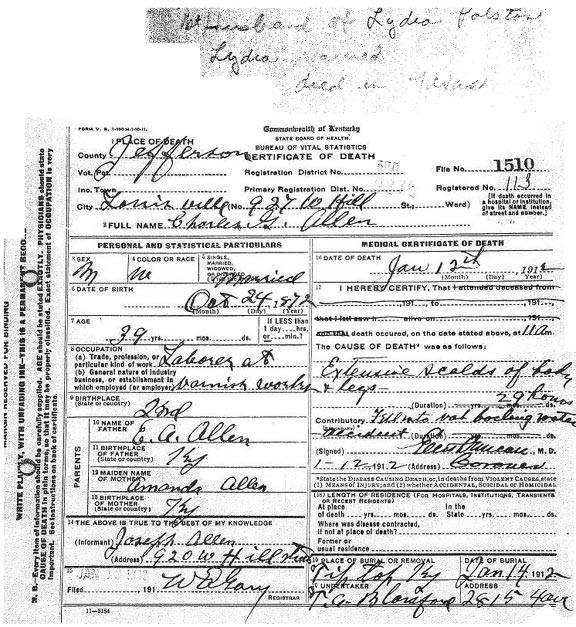 1st Husband of Lydia Polston
Lydia
died in Texas
FORM V. S. 1-
Commonwealth of Kentucky
STATE BOARD OF HEALTH
BUREAU OF VITAL STATISTICS
CERTIFICATE OF DEATH
1 PLACE OF DEATH
County Jefferson
Vot. Pct.
Registration District No.
File No. 1510
Inc. Town
Primary Registration Dist. No.
Registered No. 113
City Louisville No. 927 W. Hill St., Ward)
[If death occurred in a hospital or institution, give its NAME instead of street and number.]
2 FULL NAME Charles G. Allen
PERSONAL AND STATISTICAL PARTICULARS
3 SEX M
4 COLOR OR RACE W
5 SINGLE, MARRIED, WIDOWED, Married
6 DATE OF BIRTH Oct 24 1872
(Month) (Day) (Year)
7 AGE 39 yrs. mos. ds.
If LESS than 1 day, hrs. or min.?
8 OCCUPATION
(a) Trade, profession, or particular kind of work Laborer at
(b) General nature of industry, business, or establishment in which employed (or employer) Varnish works
9 BIRTHPLACE
(State or country) Ind
PARENTS
10 NAME OF FATHER E. A. Allen
11 BIRTHPLACE OF FATHER (State or country) Ky
12 MAIDEN NAME OF MOTHER Amanda Allen
13 BIRTHPLACE OF MOTHER (State or country) Ky
14 THE ABOVE IS TRUE TO THE BEST OF MY KNOWLEDGE
(Informant) Joseph Allen
(Address) 920 W Hill
15
Filed, 191
REGISTRAR
11-3184
MEDICAL CERTIFICATE OF DEATH
16 DATE OF DEATH
Jan 12th, 1912
(Month) (Day) (Year)
17 I HEREBY CERTIFY, That I attended deceased from
, 191 , to , 191 ,
that I last saw h alive on , 191 ,
and that death occurred, on the date stated above, at 11 am
The CAUSE OF DEATH* was as follows:
Extensive scalds of body
& legs
(Duration) yrs. mos. ds. 29 hours
Contributory Fell into vat boiling water
accident (Duration) yrs. mos. ds.
(Signed) Ellis Duncan, M. D.
1-12, 1912 (Address) Coroner
*State the DISEASE CAUSING DEATH, or, in deaths from VIOLENT CAUSES, state (1) MEANS OF INJURY; and (2) whether ACCIDENTAL, SUICIDAL or HOMICIDAL
18 LENGTH OF RESIDENCE (FOR HOSPITALS, INSTITUTIONS, TRANSIENTS OR RECENT RESIDENTS)
At place of death yrs. mos. ds. In the State yrs. mos. ds.
Where was disease contracted, if not at place of death?
Former or usual residence
19 PLACE OF BURIAL OR REMOVAL Tip Top Ky
DATE OF BURIAL Jan 14, 1912
20 UNDERTAKER
ADDRESS 2815 4 ave
MARGIN RESERVED FOR BINDING
WRITE PLAINLY, WITH UNFADING INK—THIS IS A PERMANENT
N. B.—Every item of information should be carefully supplied. AGE should be stated EXACTLY. PHYSICIANS should state CAUSE OF DEATH in plain terms, so that it may be properly classified. Exact statement of OCCUPATION is very important. See instructions on back of certificate.